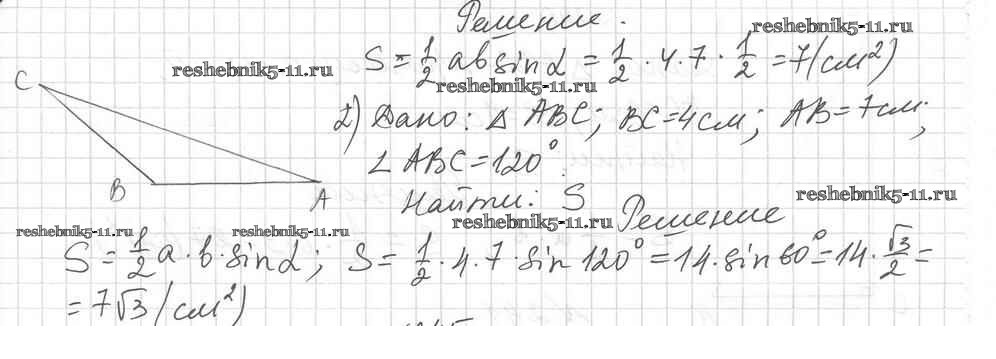 Решение.
reshebnik5-11.ru
S = 1/2 ab sin α = 1/2 · 4 · 7 · 1/2 = 7 (см²)
reshebnik5-11.ru
reshebnik5-11.ru
C
2) Дано: △ ABC; BC=4см; AB=7см;
∠ ABC=120°.
B
A
Найти: S
reshebnik5-11.ru
reshebnik5-11.ru
Решение
reshebnik5-11.ru
reshebnik5-11.ru
S = 1/2 a · b · sin α; S = 1/2 · 4 · 7 · sin 120° = 14 · sin 60° = 14 · √3/2 =
= 7√3 (см²)